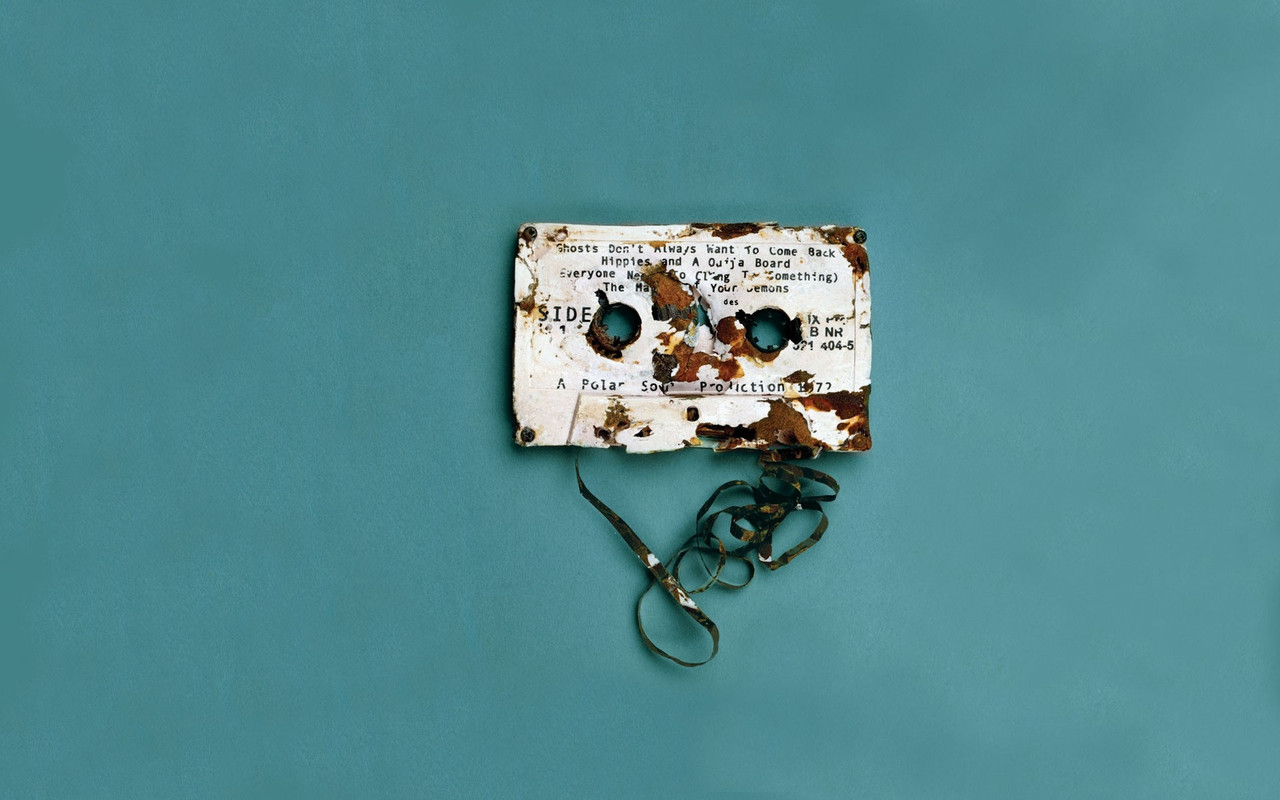 Ghosts Don't Always Want To Come Back
Hippies and A Ouija Board
Everyone To Cling To Something)
The Of Your Demons
des
SIDE
1
IX
B NR
321 404-5
A Polar Production